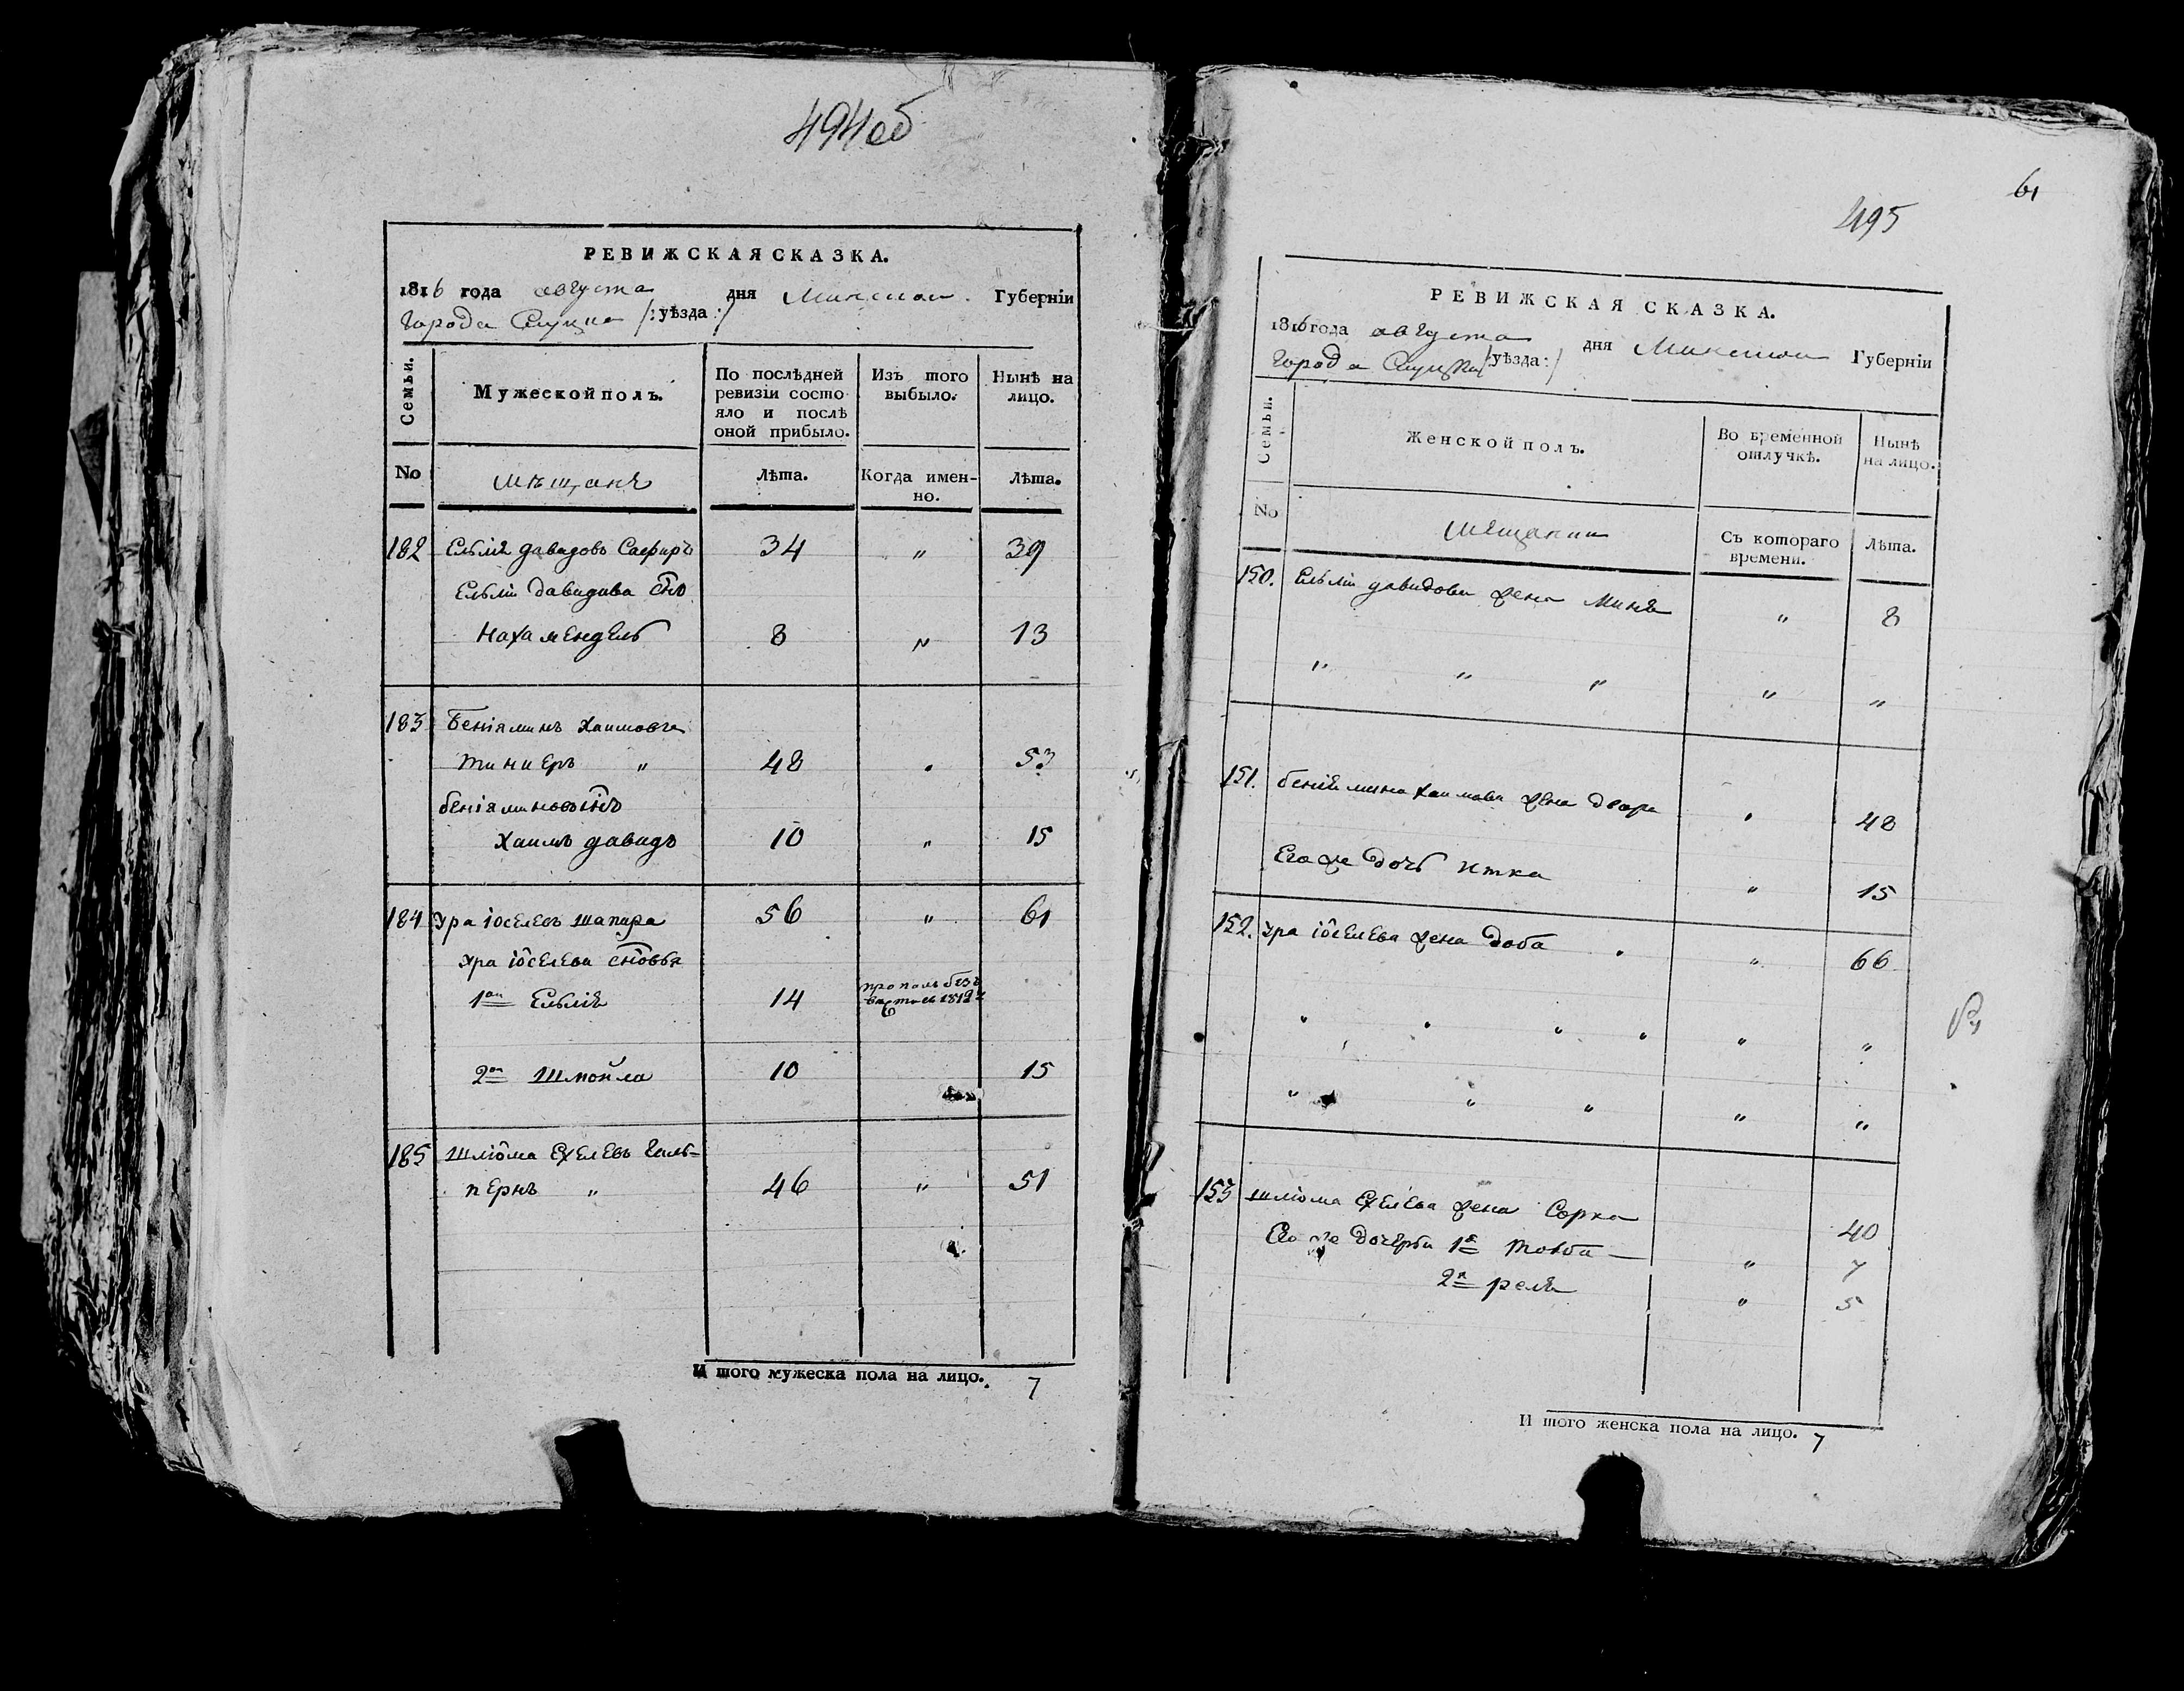 494об
РЕВИЖСКАЯ СКАЗКА.
1816 года августа дня Минской Губерніи
Города Слуцка /:уѣзда:/
Семьи.
Мужеской полъ.
По послѣдней ревизіи состояло и послѣ оной прибыло.
Изъ того выбыло.
Нынѣ на лицо.
No
мѣщанъ
Лѣта.
Когда именно.
Лѣта.
182 Ельля давидовъ Сафиръ 34 " 39
Ельли давидова снъ
Нахамендель 8 " 13
183 Беніяминъ Хаимовъ
тиниеръ " 48 " 53
беніяминовъ снъ
Хаимъ давидъ 10 " 15
184 Ура іоселевъ шапира 56 " 61
Ура іоселева сновья
1ой Ельлія 14
2ой Шмойла 10 15
185 шліома Ехелевъ Галь=
пернъ " 46 " 51
И того мужеска пола на лицо. 7
61
495
РЕВИЖСКАЯ СКАЗКА.
1816 года августа дня Минской Губерніи
Города Слуцка /:уѣзда:/
Семьи.
Женской полъ.
Во временной отлучкѣ.
Нынѣ на лицо.
No
мѣщанки
Съ котораго времени.
Лѣта.
150. Ельли давидова жена Миня " 8
" " " " "
151. беніямина Хаимова жена двора " 48
Его же дочь итка " 15
152. Ура іоселева жена доба " 66
" " " " " "
" " " " "
153 шліома Ехелева жена Сорка 40
Его же дочери 1я товба " 7
2я реля " 5
И того женска пола на лицо. 7